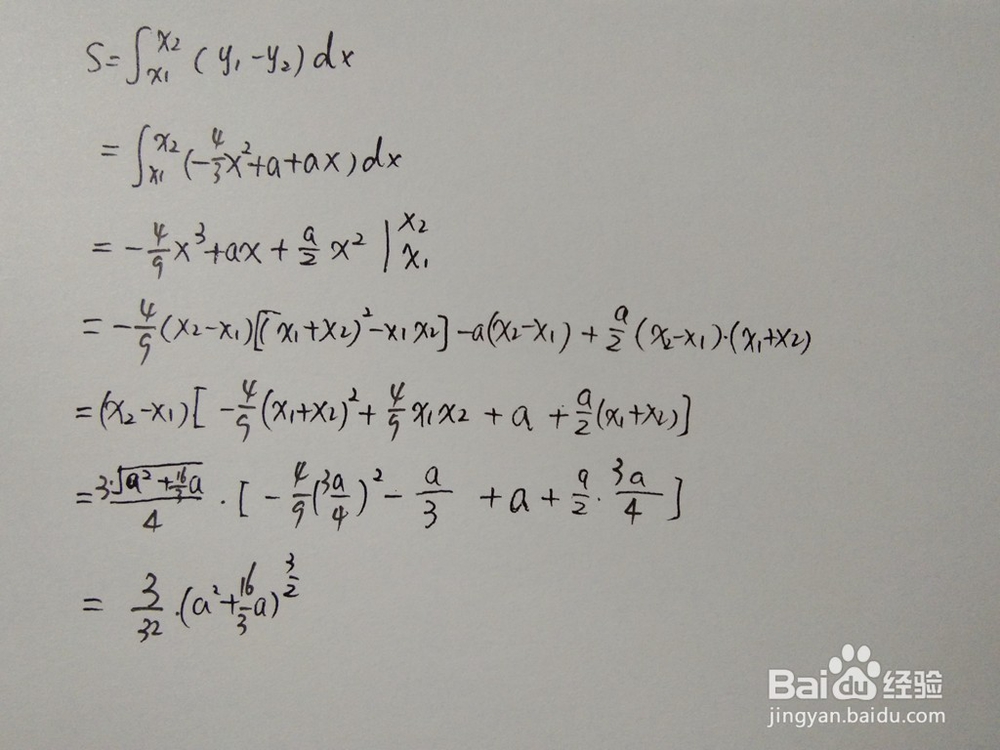 S=∫_{x1}^{x2} (y₁-y₂)dx
=∫_{x1}^{x2} (-4/3 x²+a+ax)dx
=-4/9 x³+ax+a/2 x² |_{x₁}^{x₂}
=-4/9 (x2-x1)[(x1+x2)²-x1x2]-a(x2-x1)+a/2 (x2-x1)·(x1+x2)
=(x2-x1)[-4/9 (x1+x2)²+4/9 x1x2+a+a/2 (x1+x2)]
=3·√(a²+16/3 a)/4 ·[-4/9 (3a/4)²-a/3 +a+a/2·3a/4]
=3/32·(a²+16/3 a)^{3/2}
Baidu 经验
jingyan.baidu.com